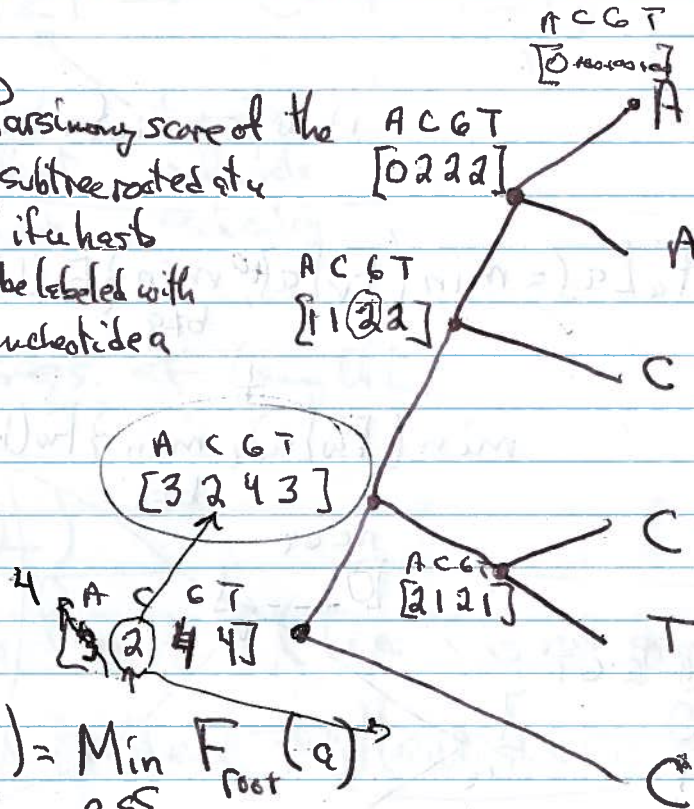 A C G T
[0 +∞+∞+∞]
A
Parsimony score of the
subtree rooted at u
if u has to
be labeled with
nucleotide a
A C G T
[0 2 2 2]
A
A C G T
[1 1 2 2]
C
A C G T
[3 2 4 3]
C
A C G T
[2 1 2 1]
T
4
A C G T
[ 2 4 4]
) = Min F root (a)
C